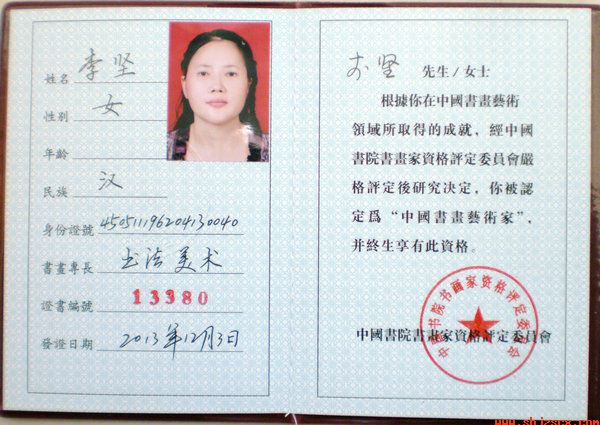 姓名 李坚
性别 女
年齡
民族 汉
身份證號 450511196204130040
書畫專長 书法 美术
證書編號 13380
發證日期 2013年12月3日
李坚 先生/女士
根據你在中國書畫藝術
領域所取得的成就，經中國
書院書畫家資格評定委員會嚴
格評定後研究决定，你被認
定爲“中國書畫藝術家”，
并終生享有此資格。
中国书院书画家资格评定委员会
中國書院書畫家資格評定委員會